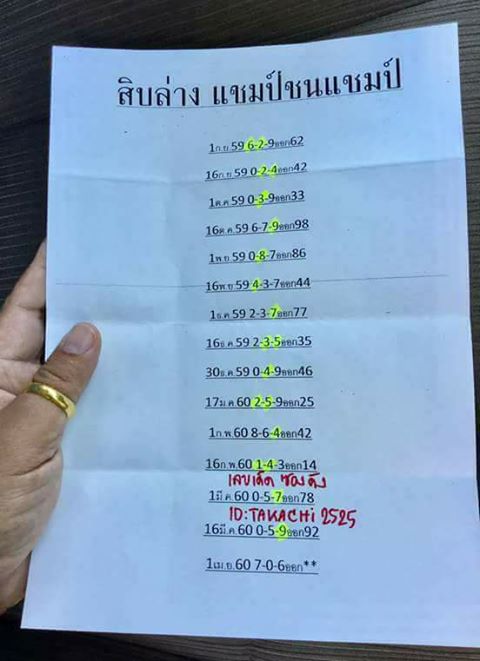 สิบล่าง แชมป์ชนแชมป์
1ก.ย 59 6-2-9ออก62
16ก.ย 59 0-2-4ออก42
1ต.ค 59 0-3-9ออก33
16ต.ค. 59 6-7-9ออก98
1พ.ย 59 0-8-7ออก86
16พ.ย 59 4-3-7ออก44
1ธ.ค 59 2-3-7ออก77
16ธ.ค 59 2-3-5ออก35
30ธ.ค. 59 0-4-9ออก46
17ม.ค. 60 2-5-9ออก25
1ก.พ. 60 8-6-4ออก42
16ก.พ. 60 1-4-3ออก14
เลขเด็ด ซองดัง
1มี.ค 60 0-5-7ออก78
ID:TAKACHi 2525
16มี.ค. 60 0-5-9ออก92
1เม.ย. 60 7-0-6ออก**